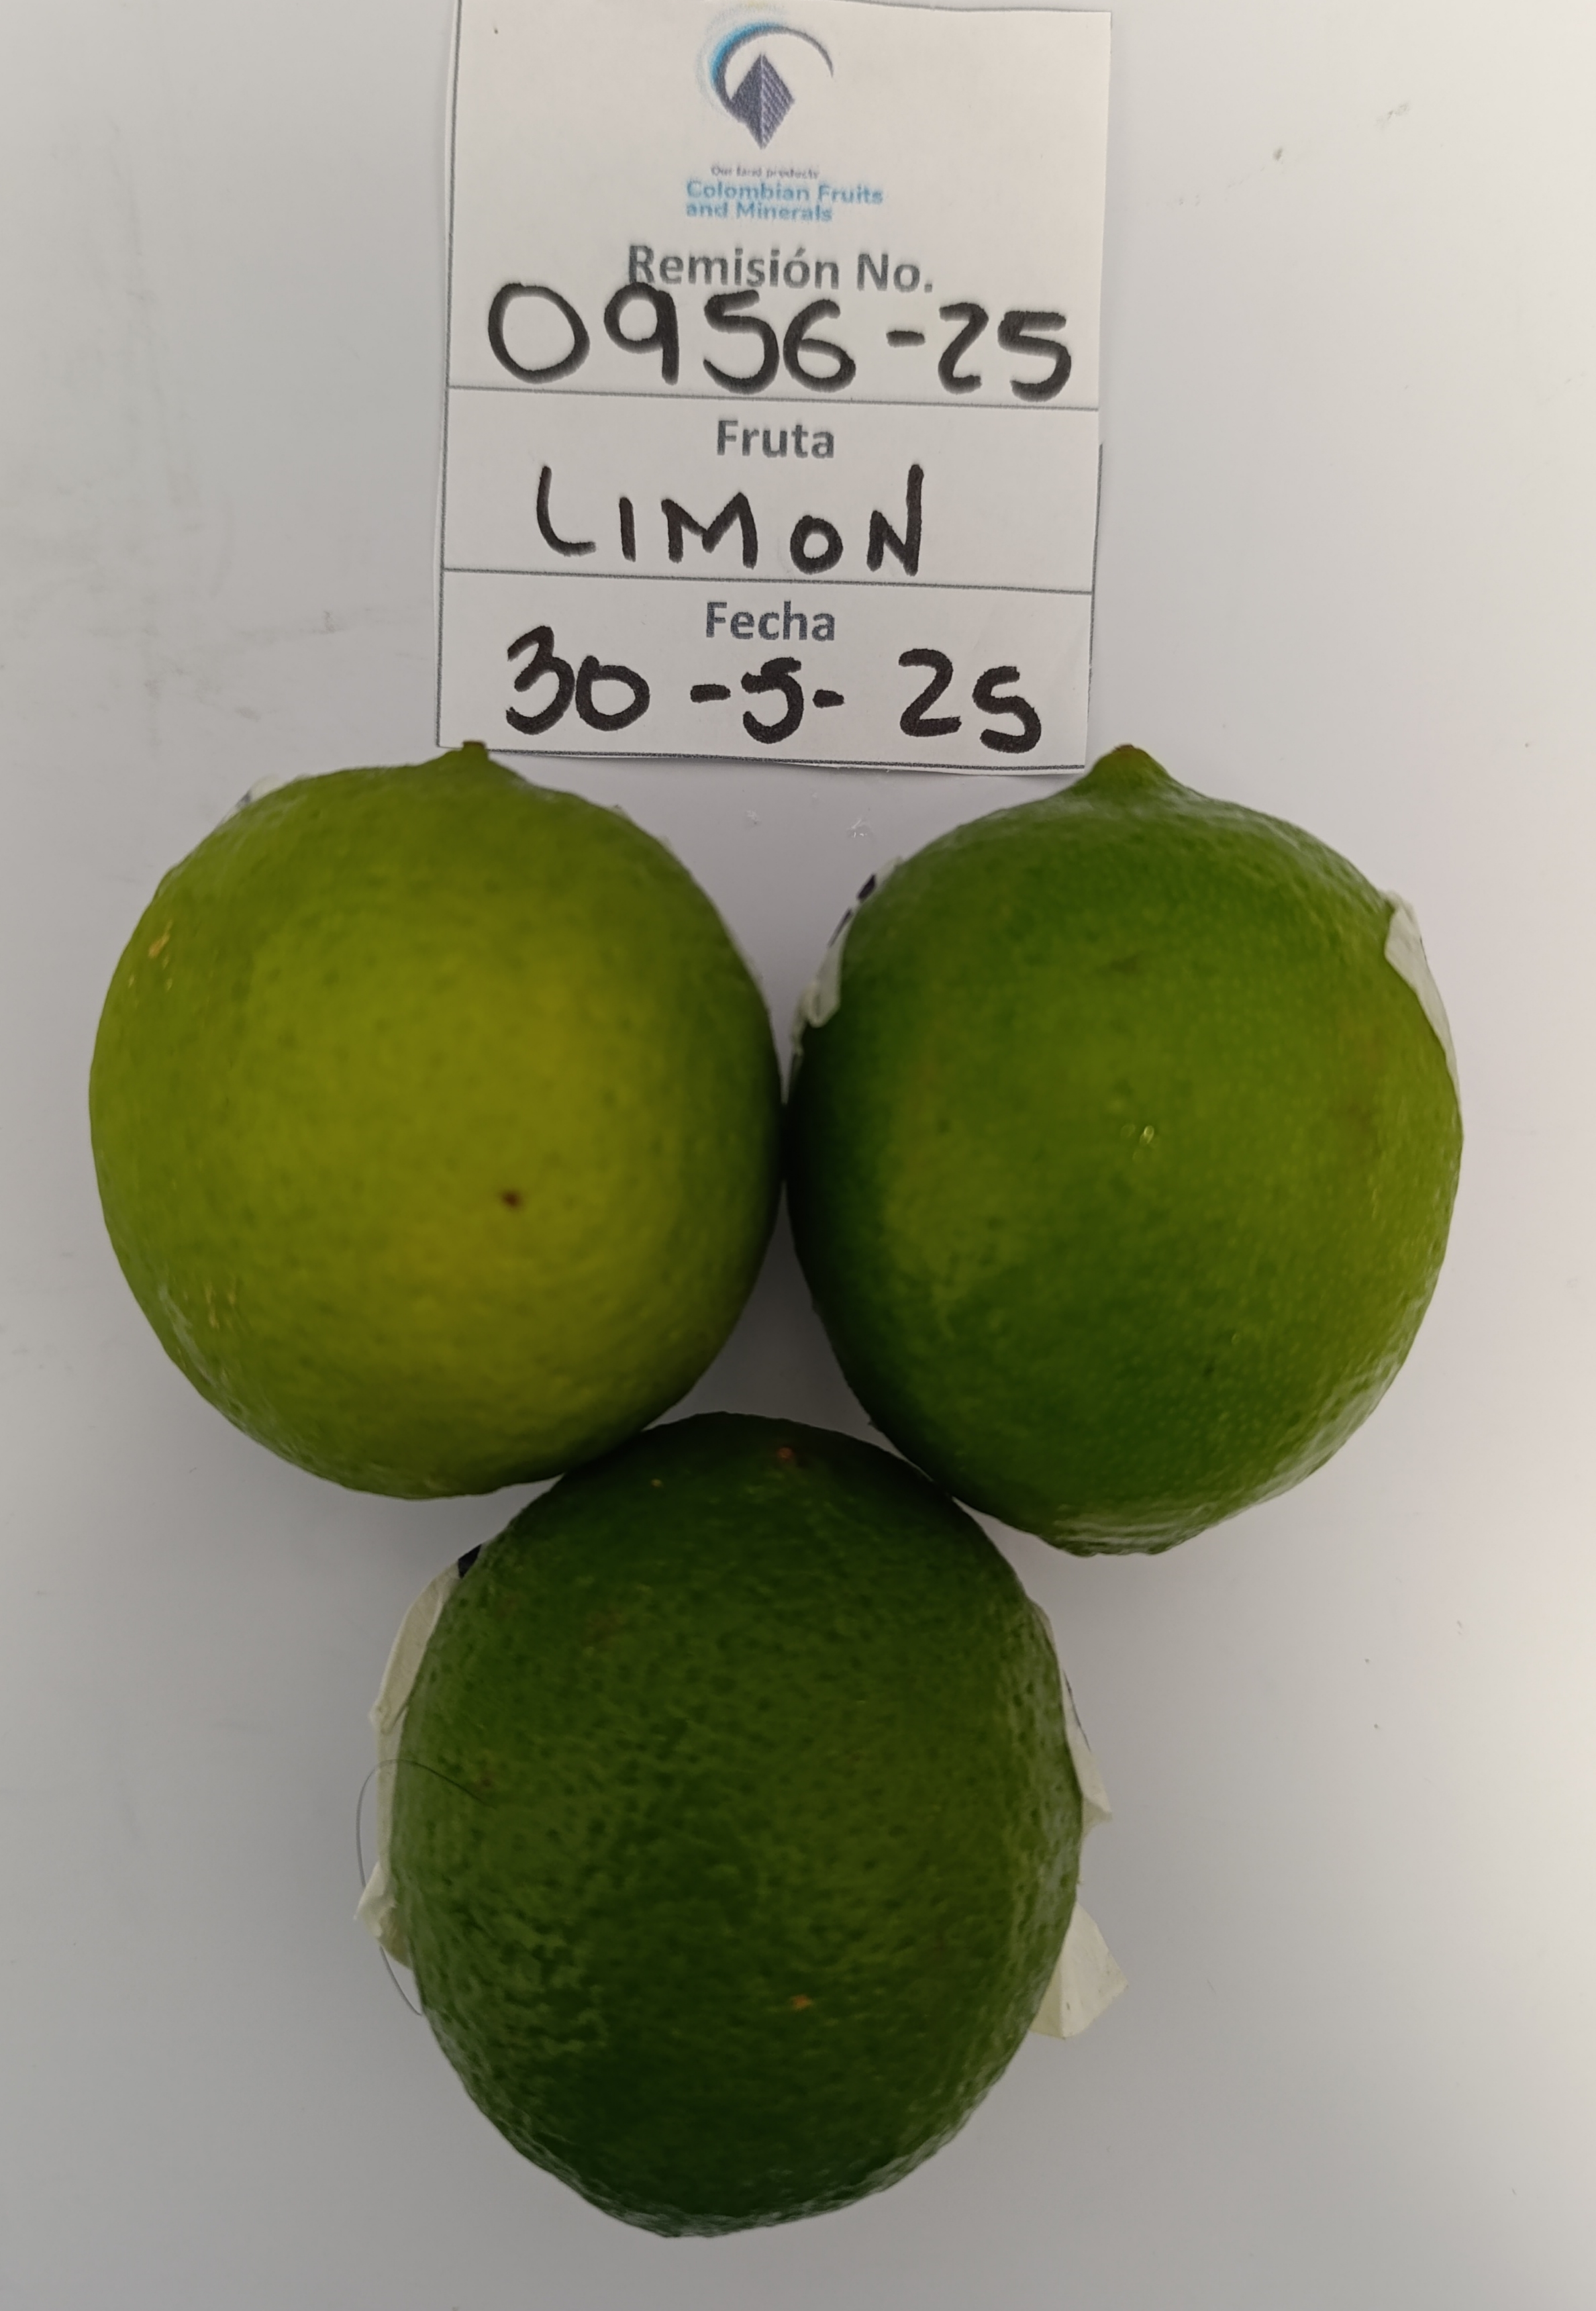 Our land products
Colombian Fruits
and Minerals
Remisión No.
0956-25
Fruta
LIMON
Fecha
30-5-25